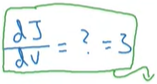 dJ/dv = ? = 3